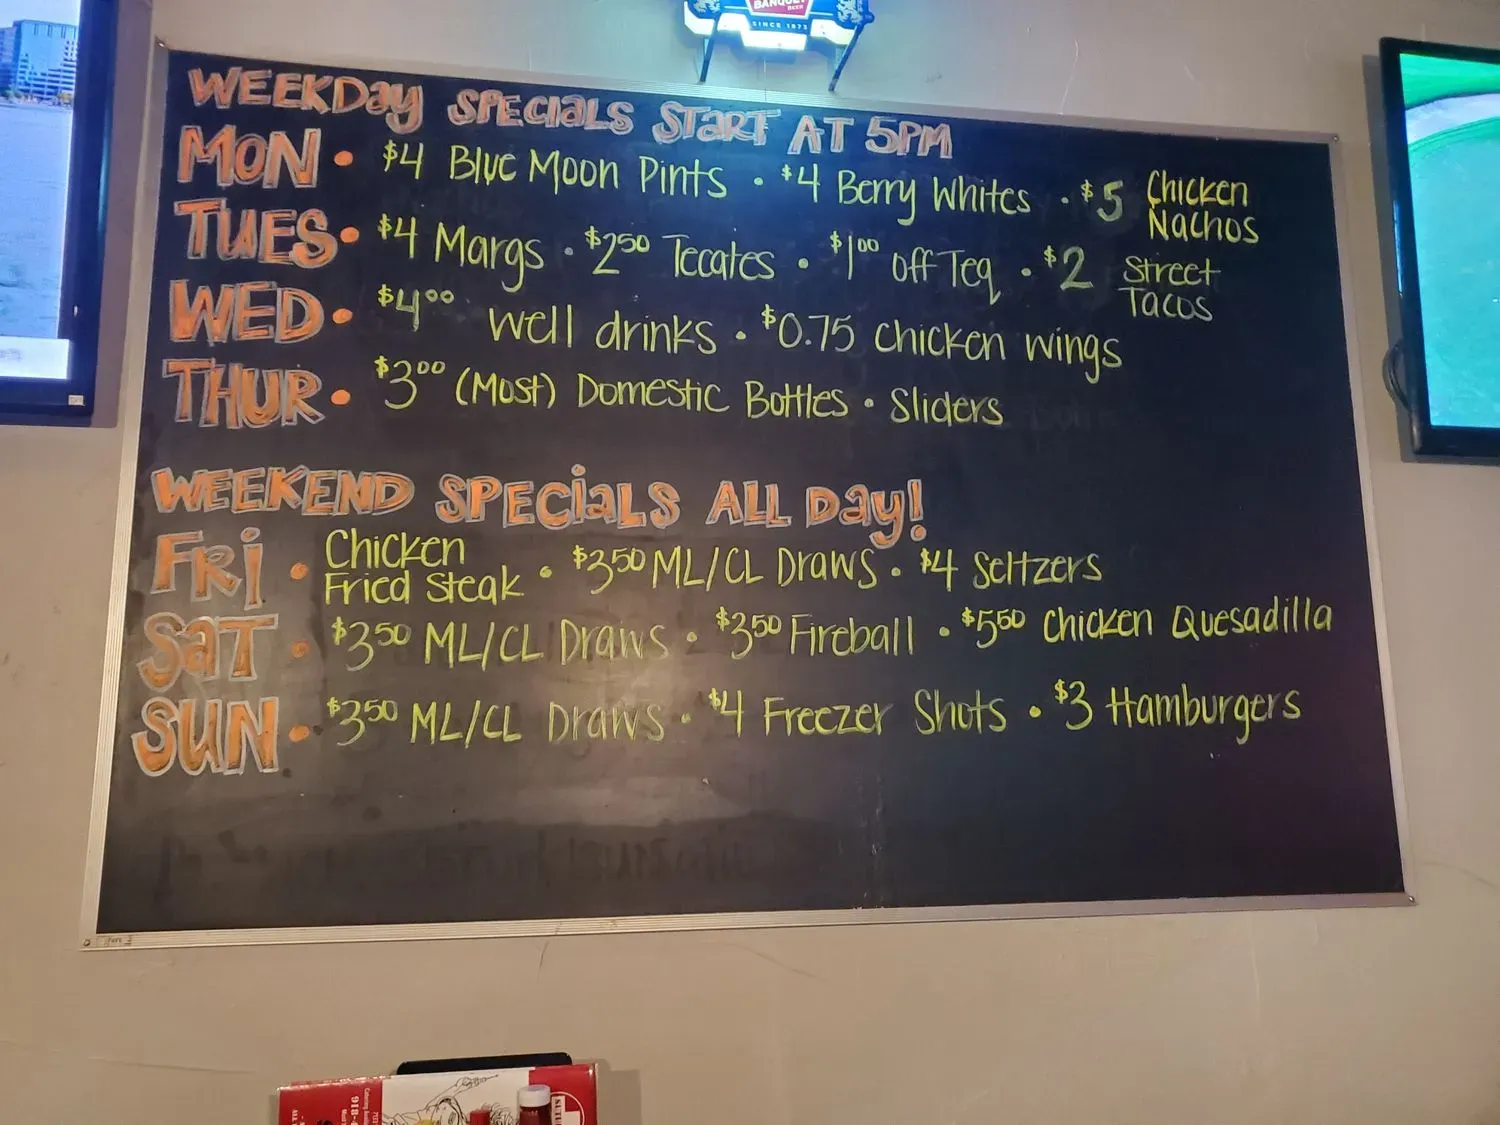 BANQUET
BEER
SINCE 1873
WEEKDay SPECiaLS STaRT AT 5PM
MON • $4 Blue Moon Pints • $4 Berry Whites • $5 Chicken Nachos
TUES • $4 Margs • $2⁵⁰ Tecates • $1⁰⁰ off Teq • $2 Street Tacos
WED • $4⁰⁰ well drinks • $0.75 chicken wings
THUR • $3⁰⁰ (Most) Domestic Bottles • Sliders
WEEKEND SPECiaLS ALL Day!
FRi • Chicken Fried Steak • $3⁵⁰ ML/CL Draws • $4 Seltzers
SaT • $3⁵⁰ ML/CL Draws • $3⁵⁰ Fireball • $5⁵⁰ Chicken Quesadilla
SUN • $3⁵⁰ ML/CL Draws • $4 Freezer Shots • $3 Hamburgers